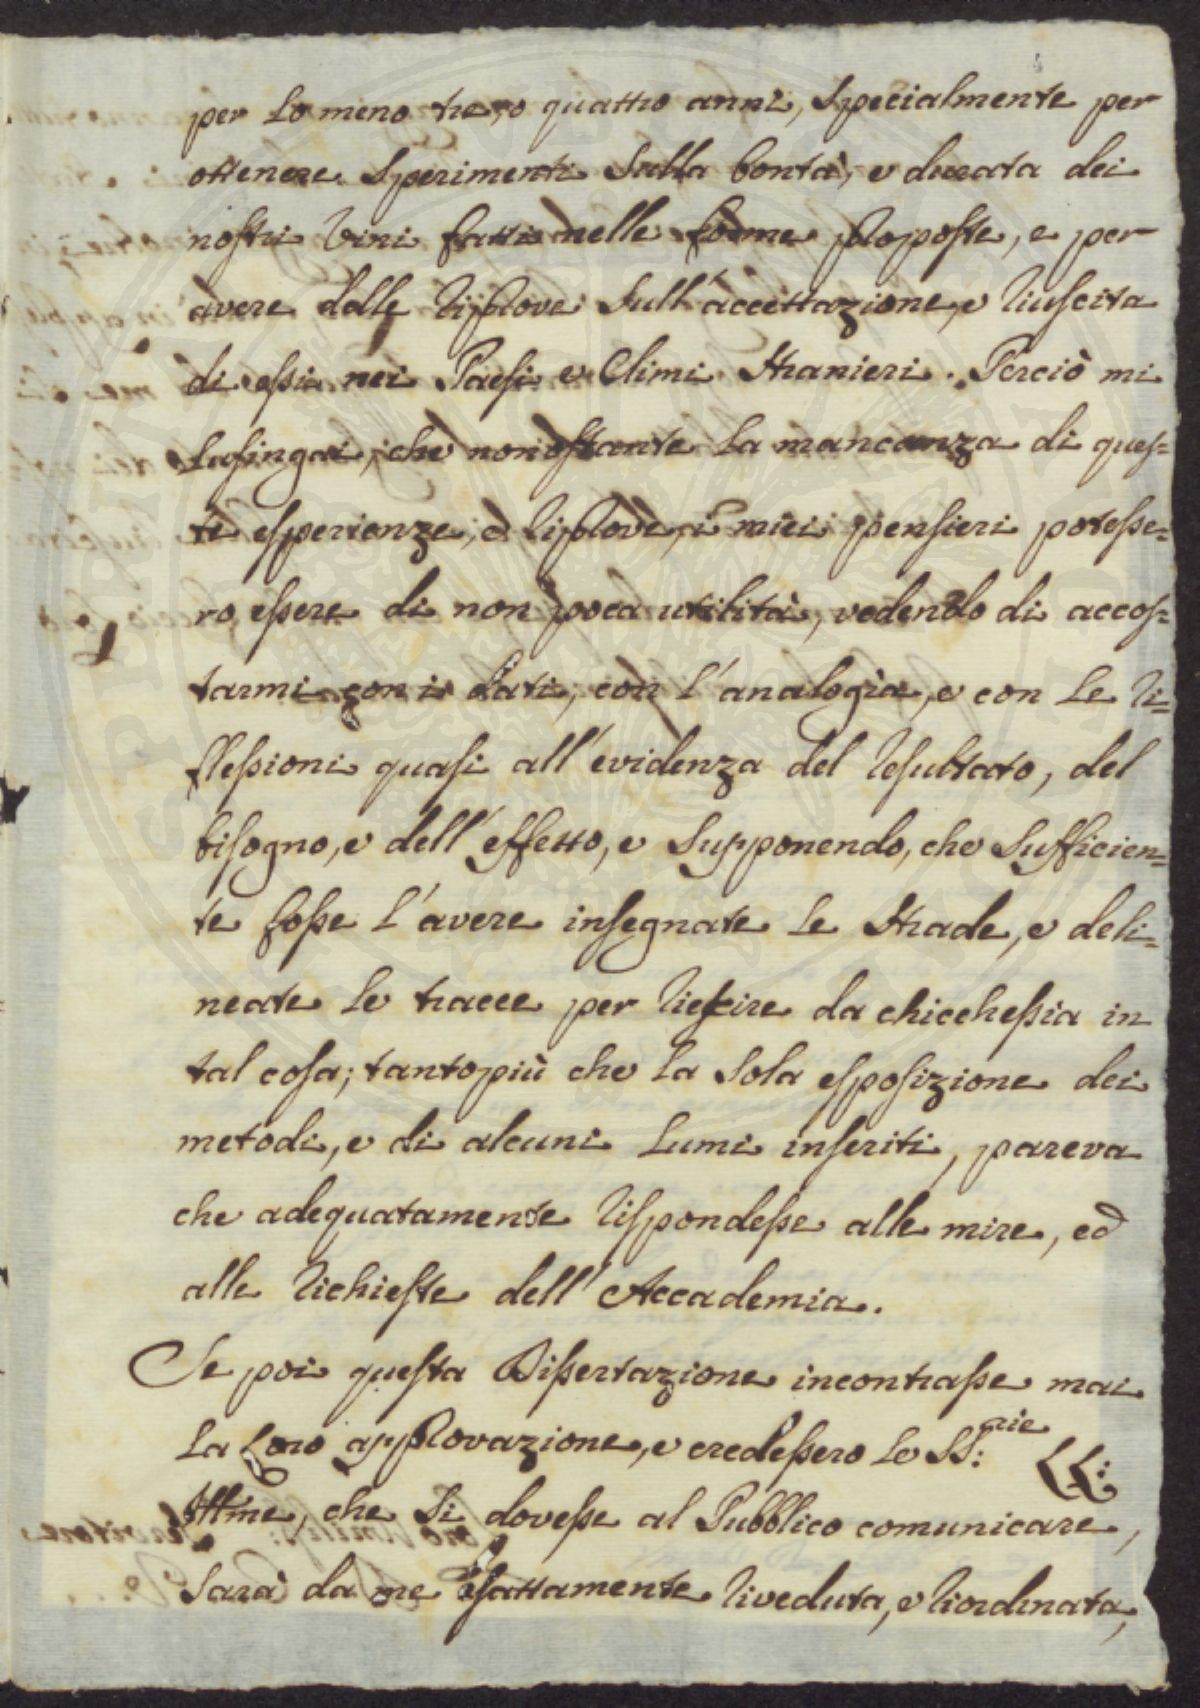 per lo meno tre, o quattro anni, specialmente per
ottenere sperimenti sulla bontà, e durata dei
nostri Vini fatti nelle forme proposte, e per
avere delle riprove sull'accettazione, e riuscita
di essi nei Paesi e Climi stranieri. Perciò mi
lusingai, che nonostante la mancanza di ques=
te esperienze, e riprove, i miei pensieri potesse=
ro essere di non poca utilità, vedendo di accos=
tarmi con i dati, con l'analogia, e con le ri=
flessioni quasi all'evidenza del resultato, del
bisogno, e dell'effetto, e supponendo, che sufficien=
te fosse l'avere insegnate le strade, e deli=
neate le tracce per riescire da chicchessia in
tal cosa; tantopiù che la sola esposizione dei
metodi, e di alcuni lumi inseriti, pareva
che adequatamente rispondesse alle mire, ed
alle richieste dell'Accademia.
Se poi questa Dissertazione incontrasse mai
la Loro approvazione, e credessero le SS:rie LL:
Illme, che si dovesse al Pubblico comunicare,
sarà da me esattamente riveduta, e riordinata,